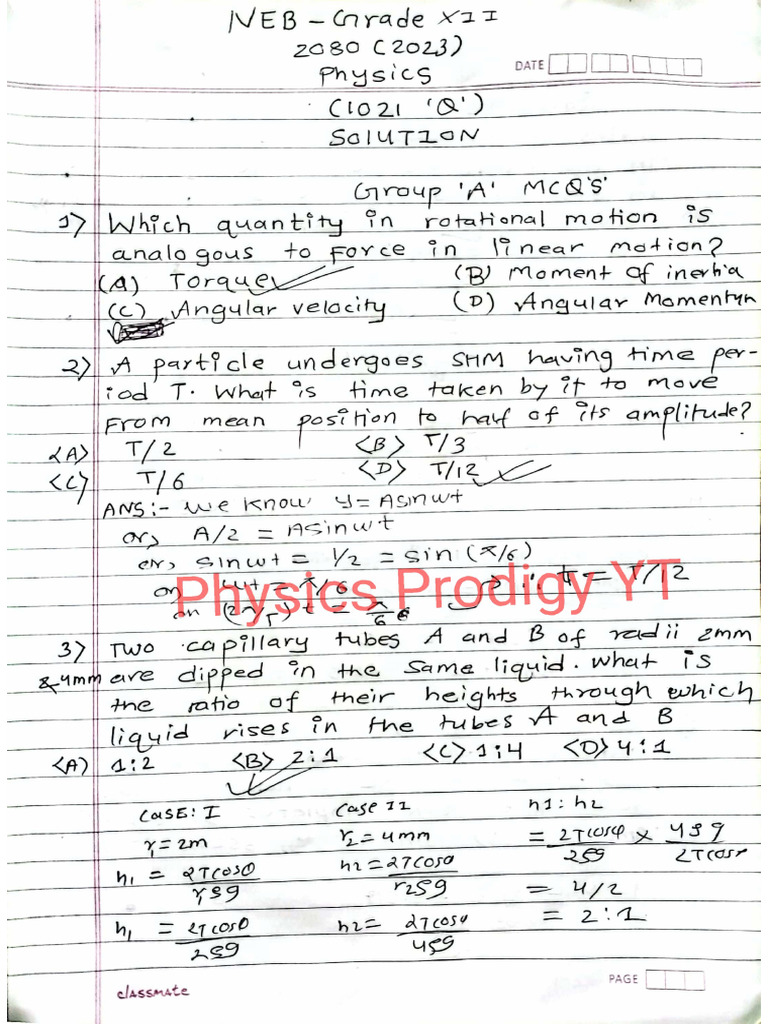 NEB - Grade XII
2080 (2023)
Physics
DATE
(1021 'Q')
SOlUTION
Group 'A' MCQ'S
1) Which quantity in rotational motion is
analogous to Force in linear motion?
(A) Torque (B) Moment of inertia
(C) Angular velocity (D) Angular Momentum
2) A particle undergoes SHM having time per-
iod T. What is time taken by it to move
From mean position to half of its amplitude?
<A> T/2 <B> T/3
<C> T/6 <D> T/12
ANS:- We know Y = Asinwt
or, A/2 = Asinwt
or, sinwt = 1/2 = sin (π/6)
or, wt = π/6 ∴ t = T/12
or (2π/T) t = π/6
Physics Prodigy YT
3) Two capillary tubes A and B of radii 2mm
& 4mm are dipped in the same liquid. What is
the ratio of their heights through which
liquid rises in the tubes A and B
<A) 1:2 <B> 2:1 <C> 1:4 <D> 4:1
CASE: I Case II h1 : h2
r1 = 2m r2 = 4mm = 2Tcosθ/2ρg × 4ρg/2Tcosθ
h1 = 2Tcosθ/r1ρg h2 = 2Tcosθ/r2ρg = 4/2
h1 = 2Tcosθ/2ρg h2 = 2Tcosθ/4ρg = 2:1
classmate PAGE